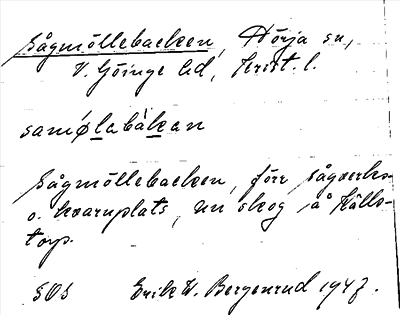 Sågmöllebacken, Hörja sn,
V. Göinge hd, Krist. l.
samǿlabákan
Sågmöllebacken, förr sågverks-
o. kvarnplats, nu skog å Källs-
torp.
SOS Erik W. Bergenrud 1947.